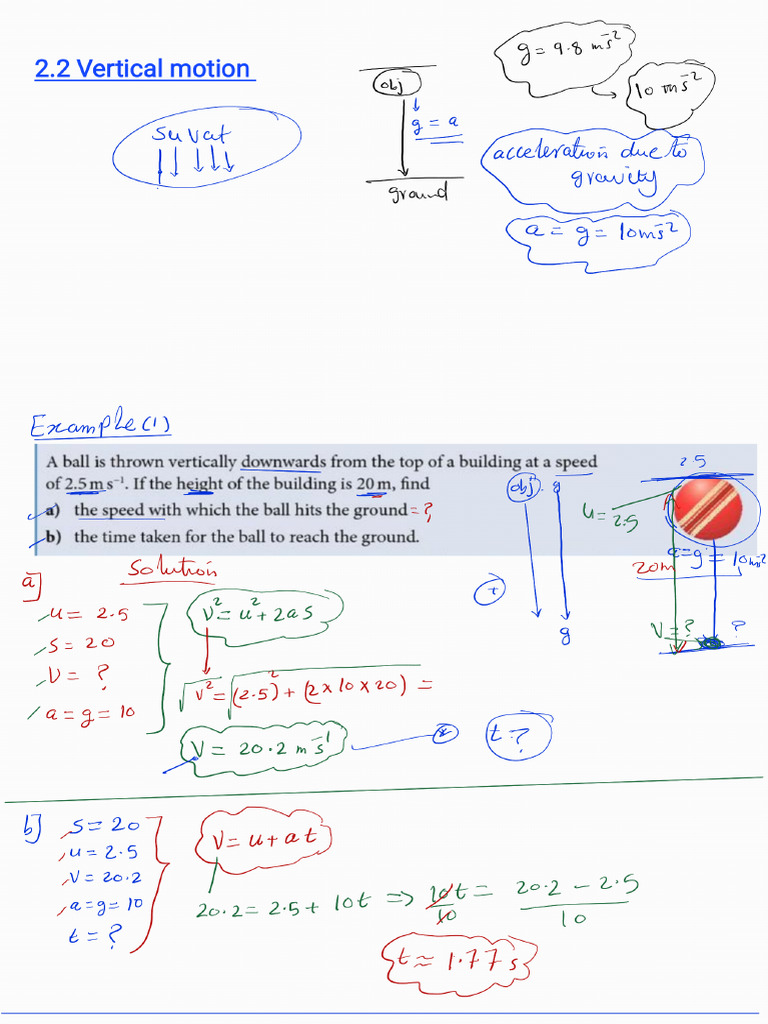 2.2 Vertical motion
g = 9.8 ms⁻²
10 ms⁻²
obj
g = a
ground
suvat
acceleration due to
gravity
a = g = 10ms⁻²
Example (1)
A ball is thrown vertically downwards from the top of a building at a speed
of 2.5 m s⁻¹. If the height of the building is 20 m, find
a) the speed with which the ball hits the ground = ?
b) the time taken for the ball to reach the ground.
obj. g
+
g
2.5
u = 2.5
a = g = 10ms⁻²
20m
V = ?
?
Solution
a]
u = 2.5
s = 20
V = ?
a = g = 10
V² = u² + 2as
√V² = √(2.5)² + (2×10×20) =
V = 20.2 ms⁻¹
t = ?
b]
s = 20
u = 2.5
V = 20.2
a = g = 10
t = ?
V = u + at
20.2 = 2.5 + 10t ⇒ 10t/10 = 20.2 − 2.5/10
t ≈ 1.77 s